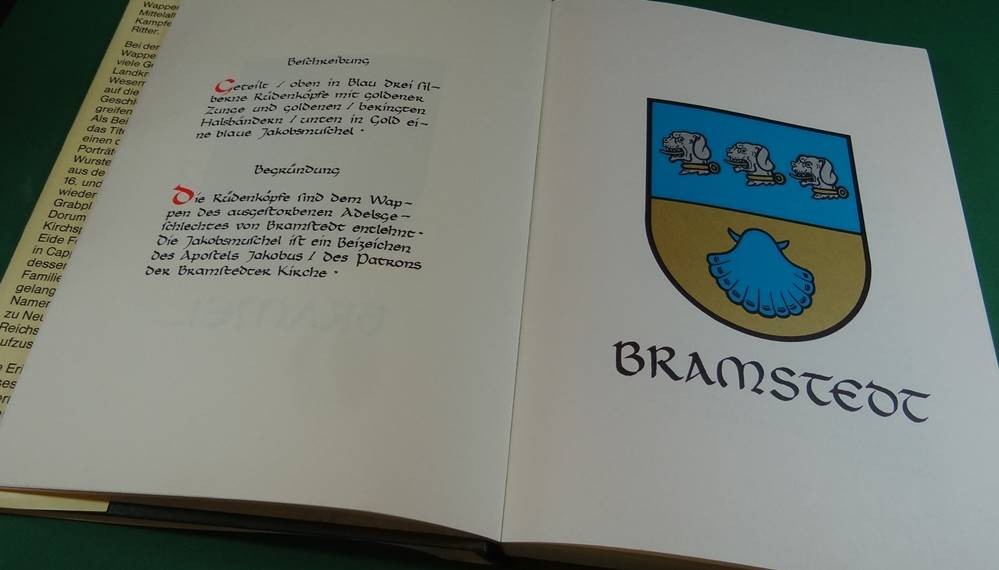 Wappen
Mittelalt
Kampfe
Ritter.
Bei der
Wappe
viele Ge
Landkr
Weserm
auf die
Geschl
greifen
Als Bei
das Tite
einen d
Porträt
Wurste
aus de
16. und
wieder
Grabpl
Dorum
Kirchsp
Eide F
in Cap
dessen
Familie
gelang
Namen
zu Neu
Reichs
aufzus
e Erl
ses
Beschreibung
Geteilt / oben in Blau drei sil-
berne Rüdenköpfe mit goldener
Zunge und goldenen / beringten
Halsbändern / unten in Gold ei-
ne blaue Jakobsmuschel.
Begründung
Die Rüdenköpfe sind dem Wap-
pen des ausgestorbenen Adelsge-
schlechtes von Bramstedt entlehnt.
Die Jakobsmuschel ist ein Beizeichen
des Apostels Jakobus / des Patrons
der Bramstedter Kirche.
BRAMEL
BRAMSTEDT